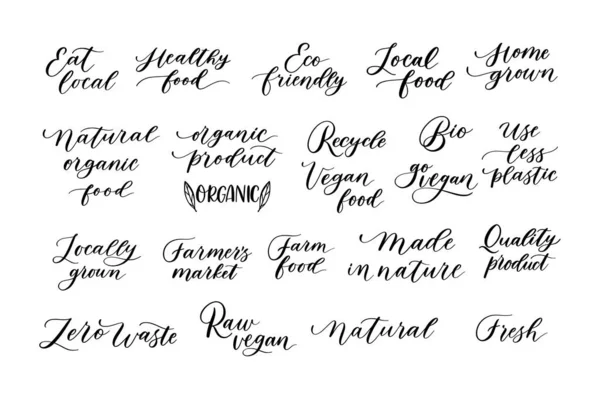 Eat
local
Healthy
food
Eco
friendly
Local
food
Home
grown
Natural
organic
food
organic
product
ORGANIC
Recycle
Vegan
food
Bio
go
vegan
Use
less
plastic
Locally
grown
Farmer's
market
Farm
food
Made
in nature
Quality
product
Zero Waste
Raw
vegan
Natural
Fresh